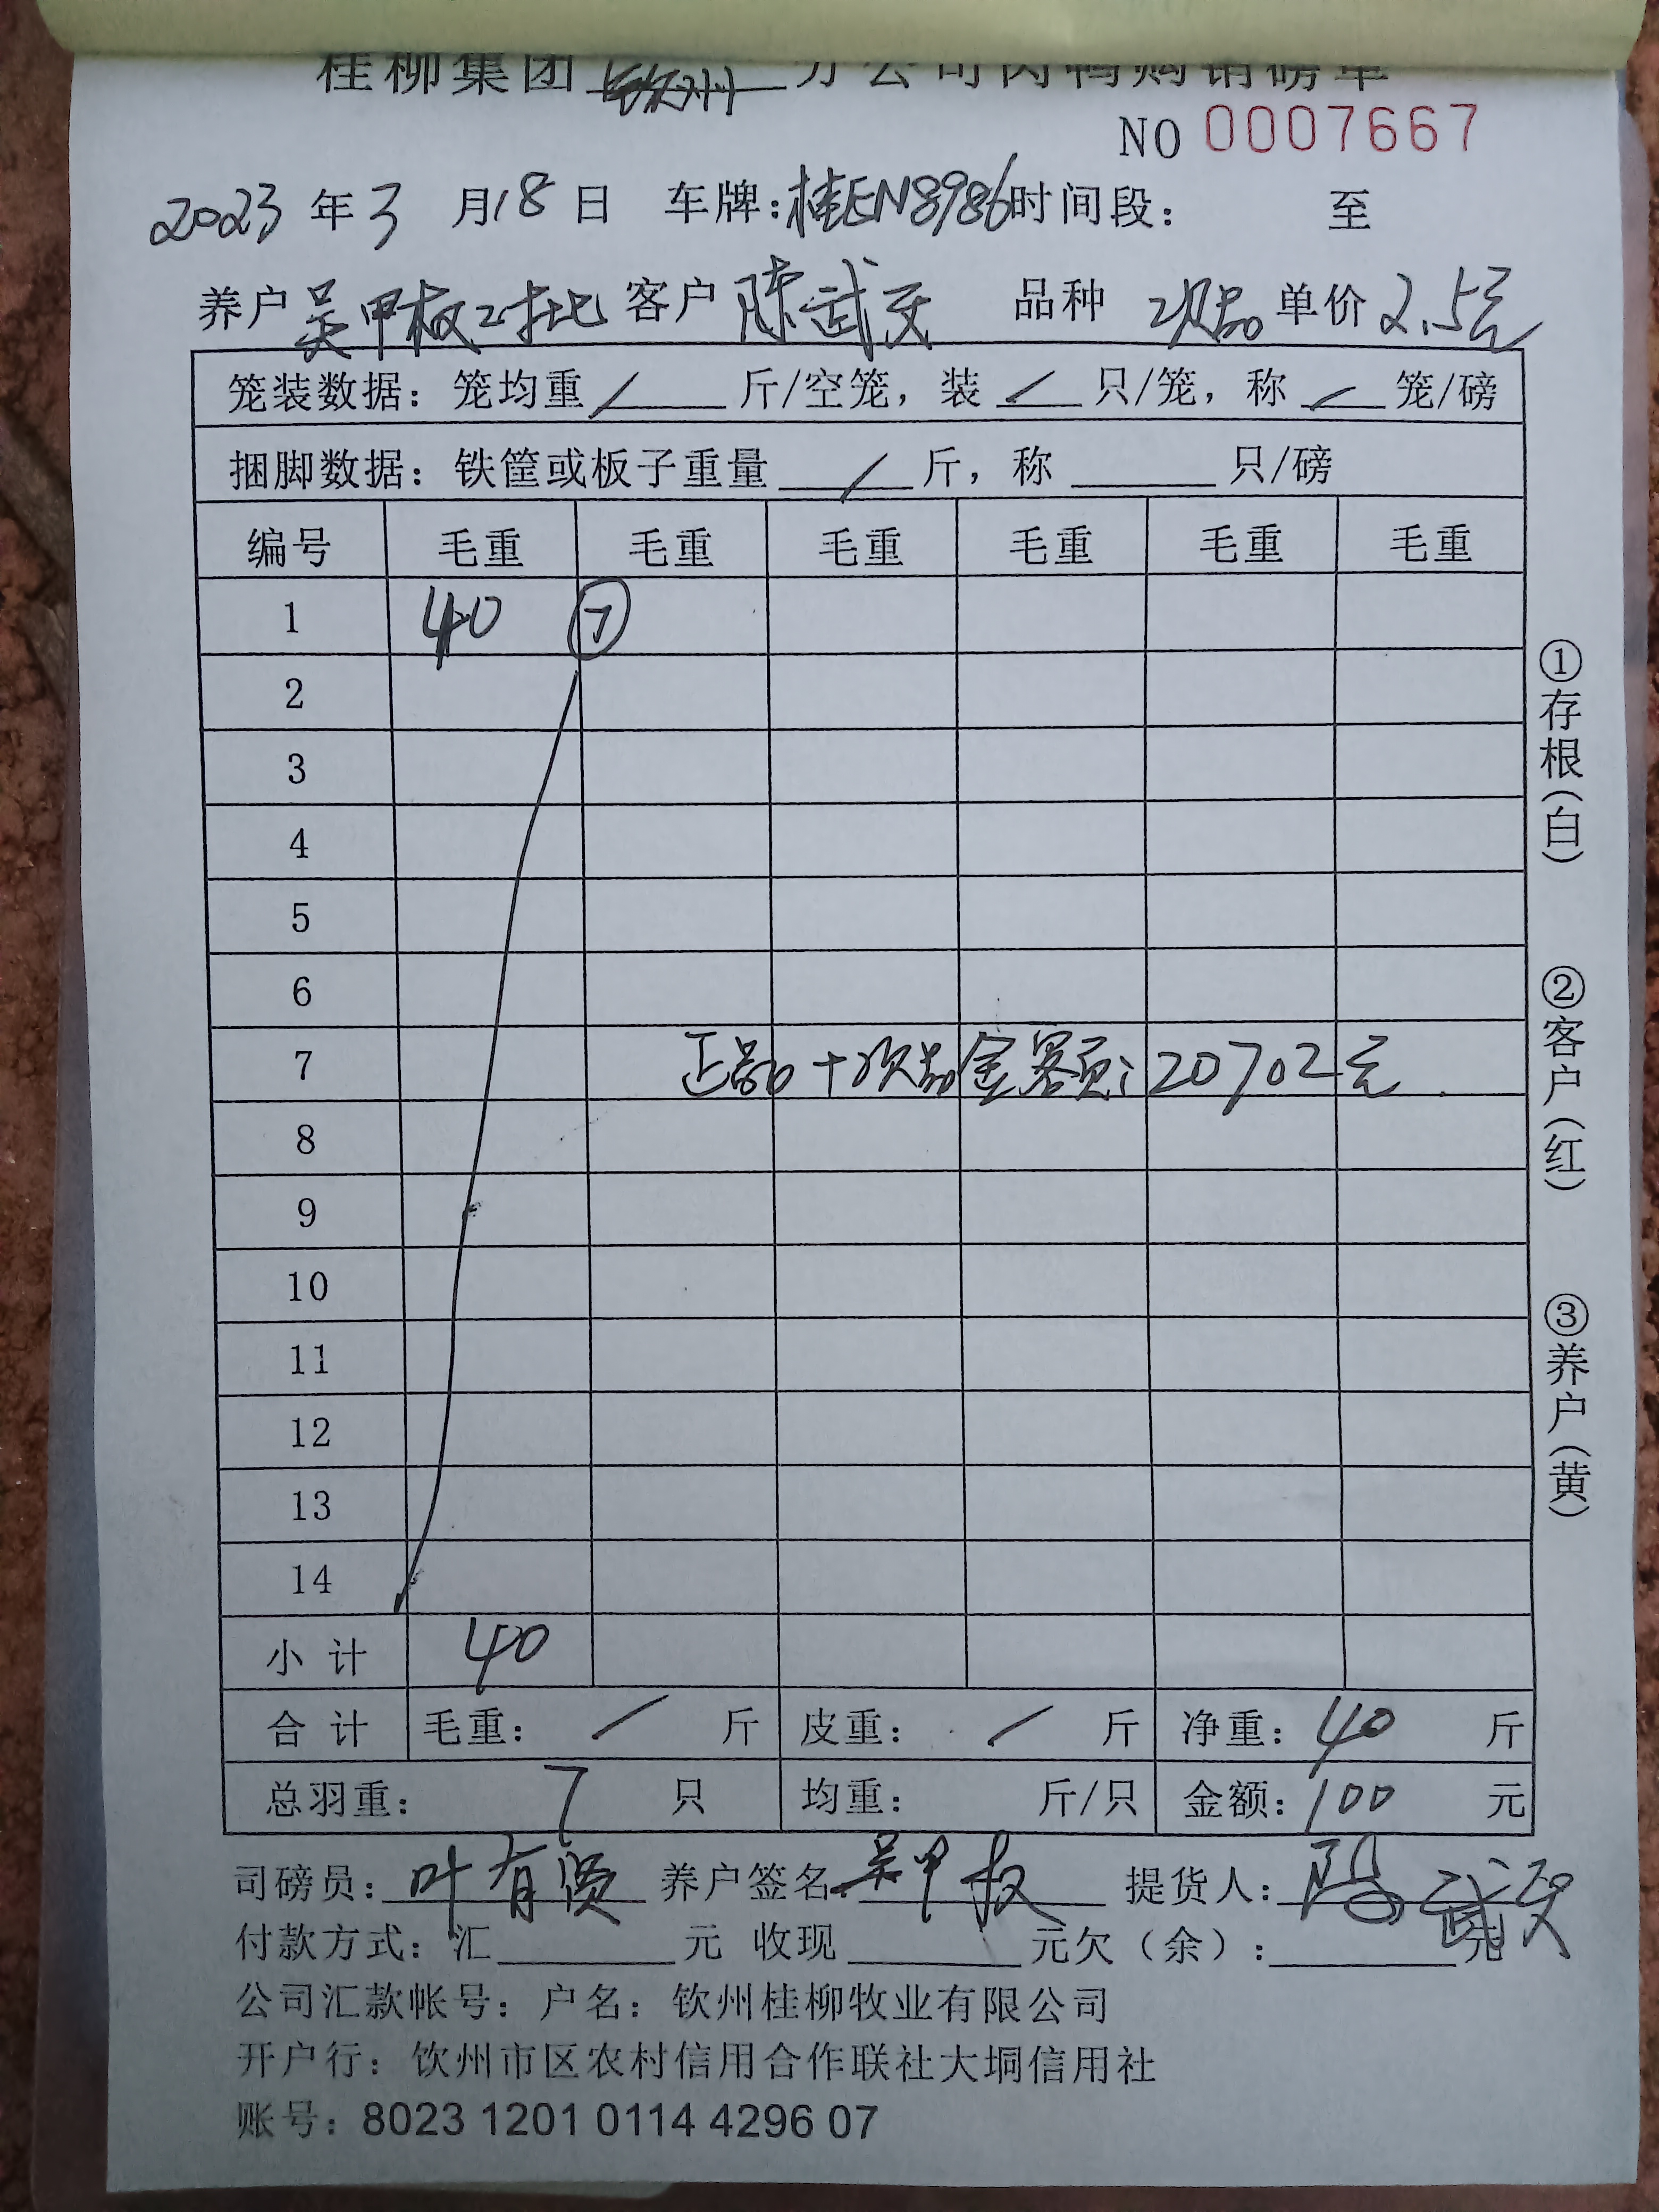 桂柳集团 钦州 分公司肉鸭购销磅单
NO 0007667
2023 年 3 月 18 日 车牌:桂EN8986 时间段: 至
养户 吴甲板2批 客户 陈武 品种 次品 单价 2.5元
笼装数据: 笼均重 / 斤/空笼, 装 / 只/笼, 称 / 笼/磅
捆脚数据: 铁筐或板子重量 / 斤, 称 只/磅
编号 毛重 毛重 毛重 毛重 毛重 毛重
1 40 ⑦
2
3
4
5
6
7 正品+次品金额: 20702元
8
9
10
11
12
13
14
小计 40
合计 毛重: / 斤 皮重: / 斤 净重: 40 斤
总羽重: 7 只 均重: 斤/只 金额: 100 元
司磅员: 叶有贤 养户签名: 吴甲板 提货人: 陈武
付款方式: 汇 元 收现 元欠(余): 元
公司汇款帐号: 户名: 钦州桂柳牧业有限公司
开户行: 钦州市区农村信用合作联社大垌信用社
账号: 8023 1201 0114 4296 07
①存根(白)
②客户(红)
③养户(黄)